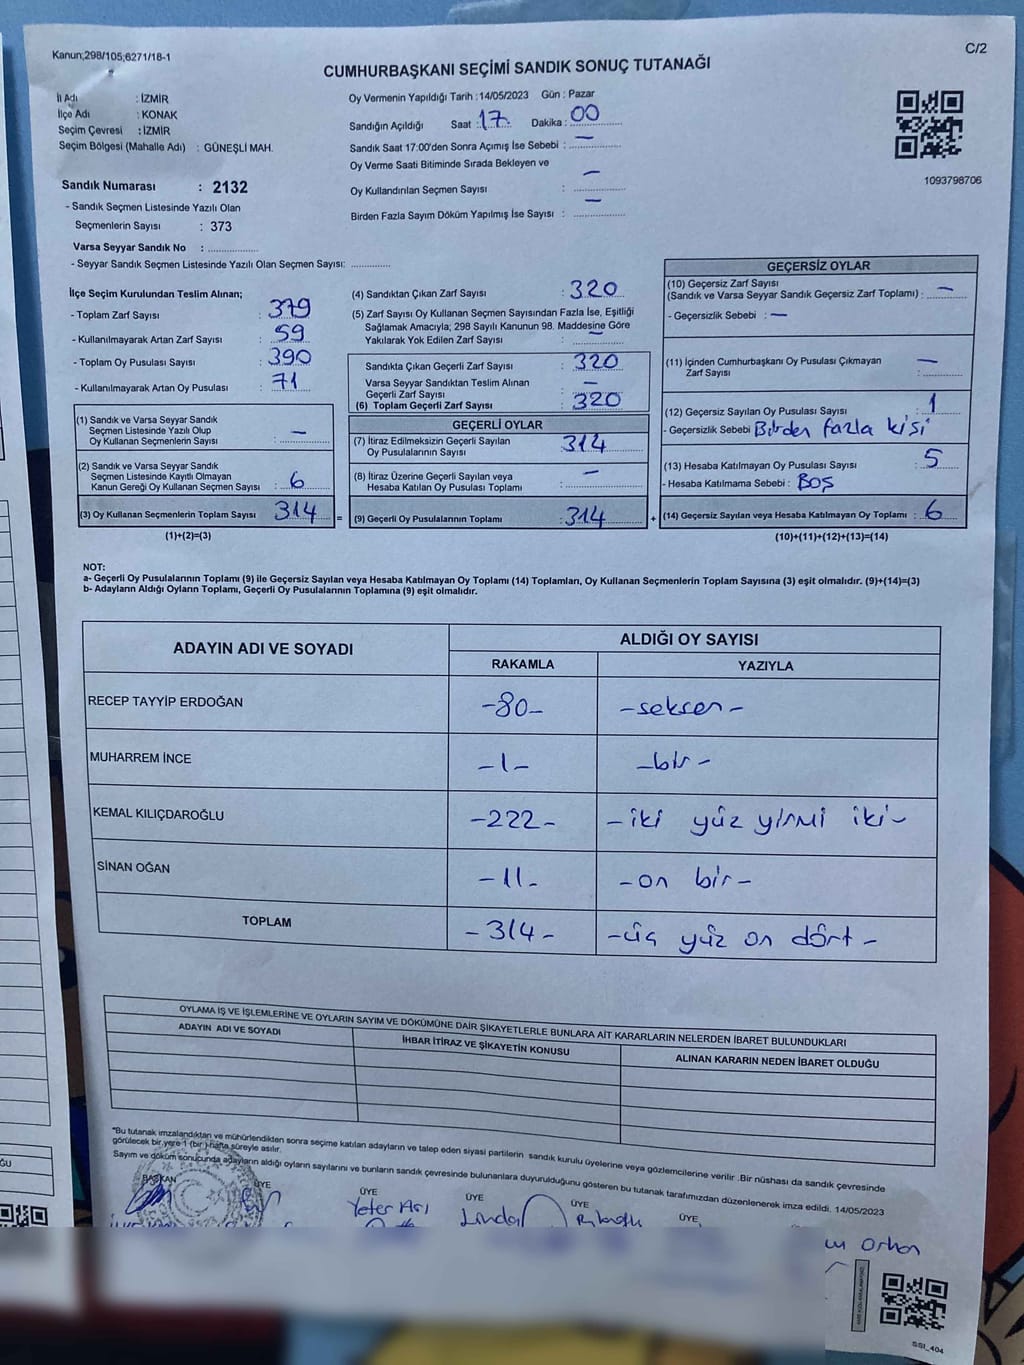 Kanun;298/105;6271/18-1
C/2
CUMHURBAŞKANI SEÇİMİ SANDIK SONUÇ TUTANAĞI
İl Adı : İZMİR
İlçe Adı : KONAK
Seçim Çevresi : İZMİR
Seçim Bölgesi (Mahalle Adı) : GÜNEŞLİ MAH.
Sandık Numarası : 2132
- Sandık Seçmen Listesinde Yazılı Olan
Seçmenlerin Sayısı : 373
Varsa Seyyar Sandık No : ..............
- Seyyar Sandık Seçmen Listesinde Yazılı Olan Seçmen Sayısı: ............
Oy Vermenin Yapıldığı Tarih : 14/05/2023 Gün : Pazar
Sandığın Açıldığı Saat : 17 Dakika : 00
Sandık Saat 17:00'den Sonra Açımış İse Sebebi : —
Oy Verme Saati Bitiminde Sırada Bekleyen ve
Oy Kullandırılan Seçmen Sayısı : —
Birden Fazla Sayım Döküm Yapılmış İse Sayısı : —
1093798706
İlçe Seçim Kurulundan Teslim Alınan;
- Toplam Zarf Sayısı : 379
- Kullanılmayarak Artan Zarf Sayısı : 59
- Toplam Oy Pusulası Sayısı : 390
- Kullanılmayarak Artan Oy Pusulası : 71
(1) Sandık ve Varsa Seyyar Sandık
Seçmen Listesinde Yazılı Olup
Oy Kullanan Seçmenlerin Sayısı : —
(2) Sandık ve Varsa Seyyar Sandık
Seçmen Listesinde Kayıtlı Olmayan
Kanun Gereği Oy Kullanan Seçmen Sayısı : 6
(3) Oy Kullanan Seçmenlerin Toplam Sayısı 314 =
(1)+(2)=(3)
(4) Sandıktan Çıkan Zarf Sayısı : 320
(5) Zarf Sayısı Oy Kullanan Seçmen Sayısından Fazla İse, Eşitliği
Sağlamak Amacıyla; 298 Sayılı Kanunun 98. Maddesine Göre
Yakılarak Yok Edilen Zarf Sayısı : —
Sandıkta Çıkan Geçerli Zarf Sayısı : 320
Varsa Seyyar Sandıktan Teslim Alınan
Geçerli Zarf Sayısı : —
(6) Toplam Geçerli Zarf Sayısı : 320
GEÇERLİ OYLAR
(7) İtiraz Edilmeksizin Geçerli Sayılan
Oy Pusulalarının Sayısı : 314
(8) İtiraz Üzerine Geçerli Sayılan veya
Hesaba Katılan Oy Pusulası Toplamı : —
(9) Geçerli Oy Pusulalarının Toplamı : 314 +
GEÇERSİZ OYLAR
(10) Geçersiz Zarf Sayısı
(Sandık ve Varsa Seyyar Sandık Geçersiz Zarf Toplamı) : —
- Geçersizlik Sebebi : —
(11) İçinden Cumhurbaşkanı Oy Pusulası Çıkmayan
Zarf Sayısı : —
(12) Geçersiz Sayılan Oy Pusulası Sayısı : 1
- Geçersizlik Sebebi Birden fazla kişi
(13) Hesaba Katılmayan Oy Pusulası Sayısı : 5
- Hesaba Katılmama Sebebi : BOŞ
(14) Geçersiz Sayılan veya Hesaba Katılmayan Oy Toplamı : 6
(10)+(11)+(12)+(13)=(14)
NOT:
a- Geçerli Oy Pusulalarının Toplamı (9) ile Geçersiz Sayılan veya Hesaba Katılmayan Oy Toplamı (14) Toplamları, Oy Kullanan Seçmenlerin Toplam Sayısına (3) eşit olmalıdır. (9)+(14)=(3)
b- Adayların Aldığı Oyların Toplamı, Geçerli Oy Pusulalarının Toplamına (9) eşit olmalıdır.
ADAYIN ADI VE SOYADI ALDIĞI OY SAYISI
RAKAMLA YAZIYLA
RECEP TAYYİP ERDOĞAN -80- -seksen-
MUHARREM İNCE -1- -bir-
KEMAL KILIÇDAROĞLU -222- -iki yüz yirmi iki-
SİNAN OĞAN -11- -on bir-
TOPLAM -314- -üç yüz on dört-
OYLAMA İŞ VE İŞLEMLERİNE VE OYLARIN SAYIM VE DÖKÜMÜNE DAİR ŞİKAYETLERLE BUNLARA AİT KARARLARIN NELERDEN İBARET BULUNDUKLARI
ADAYIN ADI VE SOYADI İHBAR İTİRAZ VE ŞİKAYETİN KONUSU ALINAN KARARIN NEDEN İBARET OLDUĞU
*Bu tutanak imzalandıktan ve mühürlendikten sonra seçime katılan adayların ve talep eden siyasi partilerin sandık kurulu üyelerine veya gözlemcilerine verilir .Bir nüshası da sandık çevresinde
görülecek bir yere 1 (bir ) hafta süreyle asılır.
Sayım ve döküm sonucunda adayların aldığı oyların sayılarını ve bunların sandık çevresinde bulunanlara duyurulduğunu gösteren bu tutanak tarafımızdan düzenlenerek imza edildi. 14/05/2023
BAŞKAN ÜYE ÜYE ÜYE ÜYE ÜYE
Yeter Arı
Orhan
SSI_404